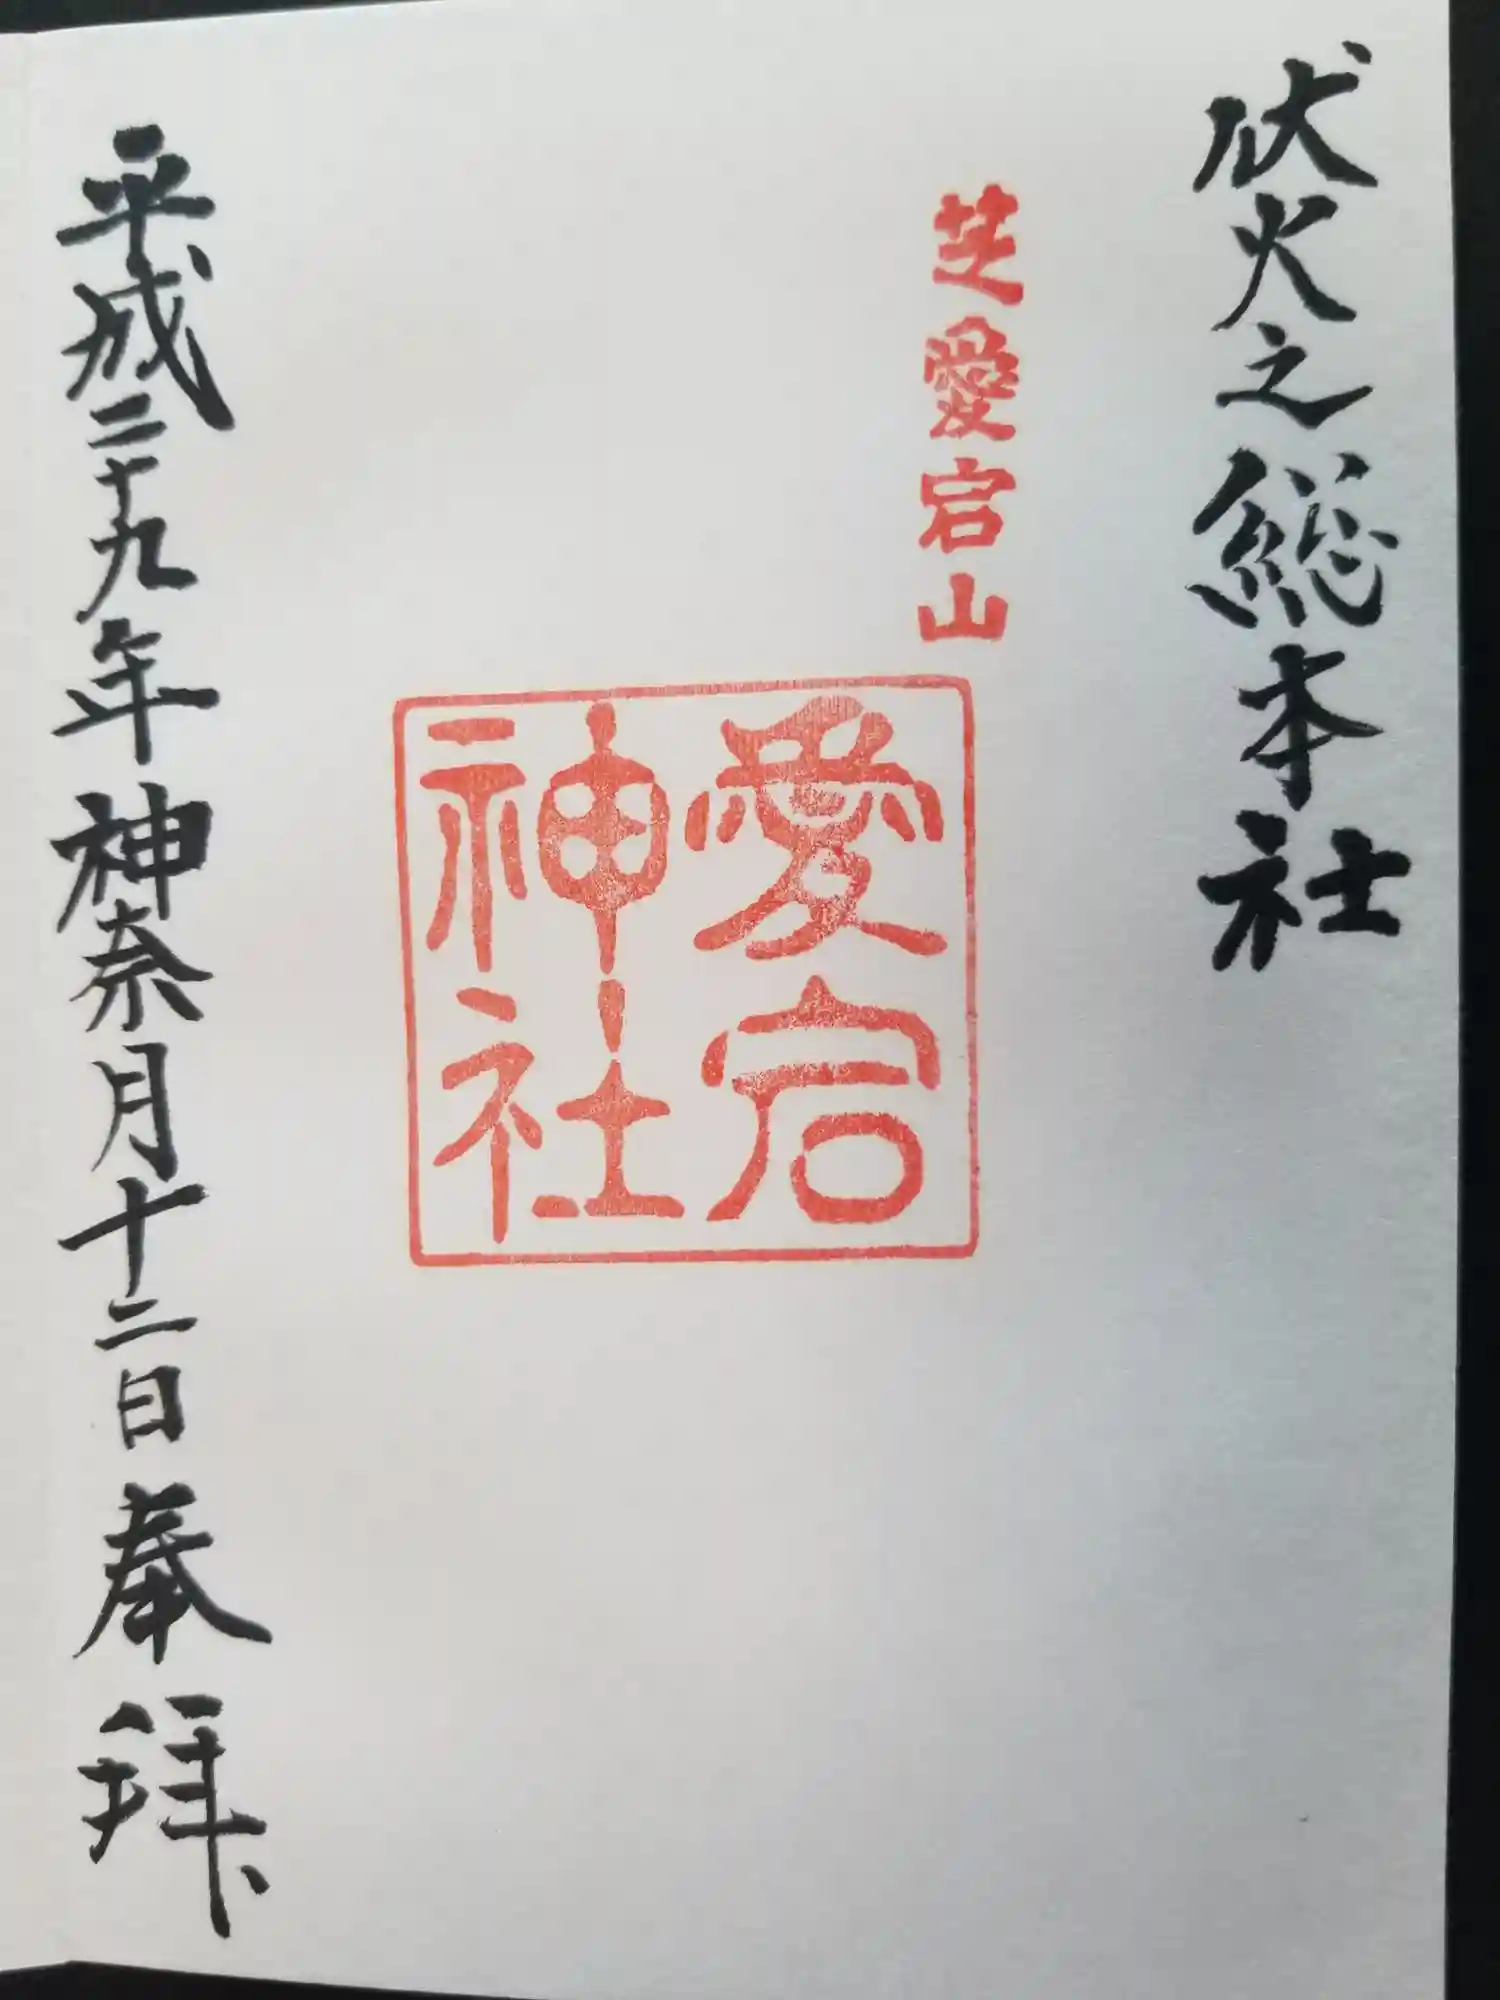 伏火之総本社
芝愛宕山
愛宕
神社
平成二十九年神奈月十二日奉拜